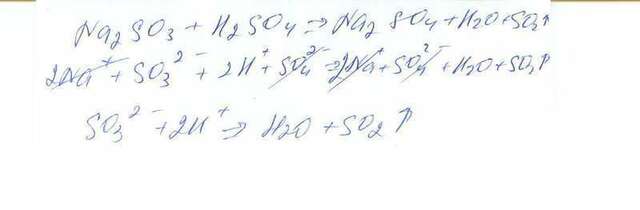 Na₂SO₃ + H₂SO₄ ⇒ Na₂SO₄ + H₂O + SO₂↑
2Na⁺ + SO₃²⁻ + 2H⁺ + SO₄²⁻ ⇒ 2Na⁺ + SO₄²⁻ + H₂O + SO₂↑
SO₃²⁻ + 2H⁺ ⇒ H₂O + SO₂↑